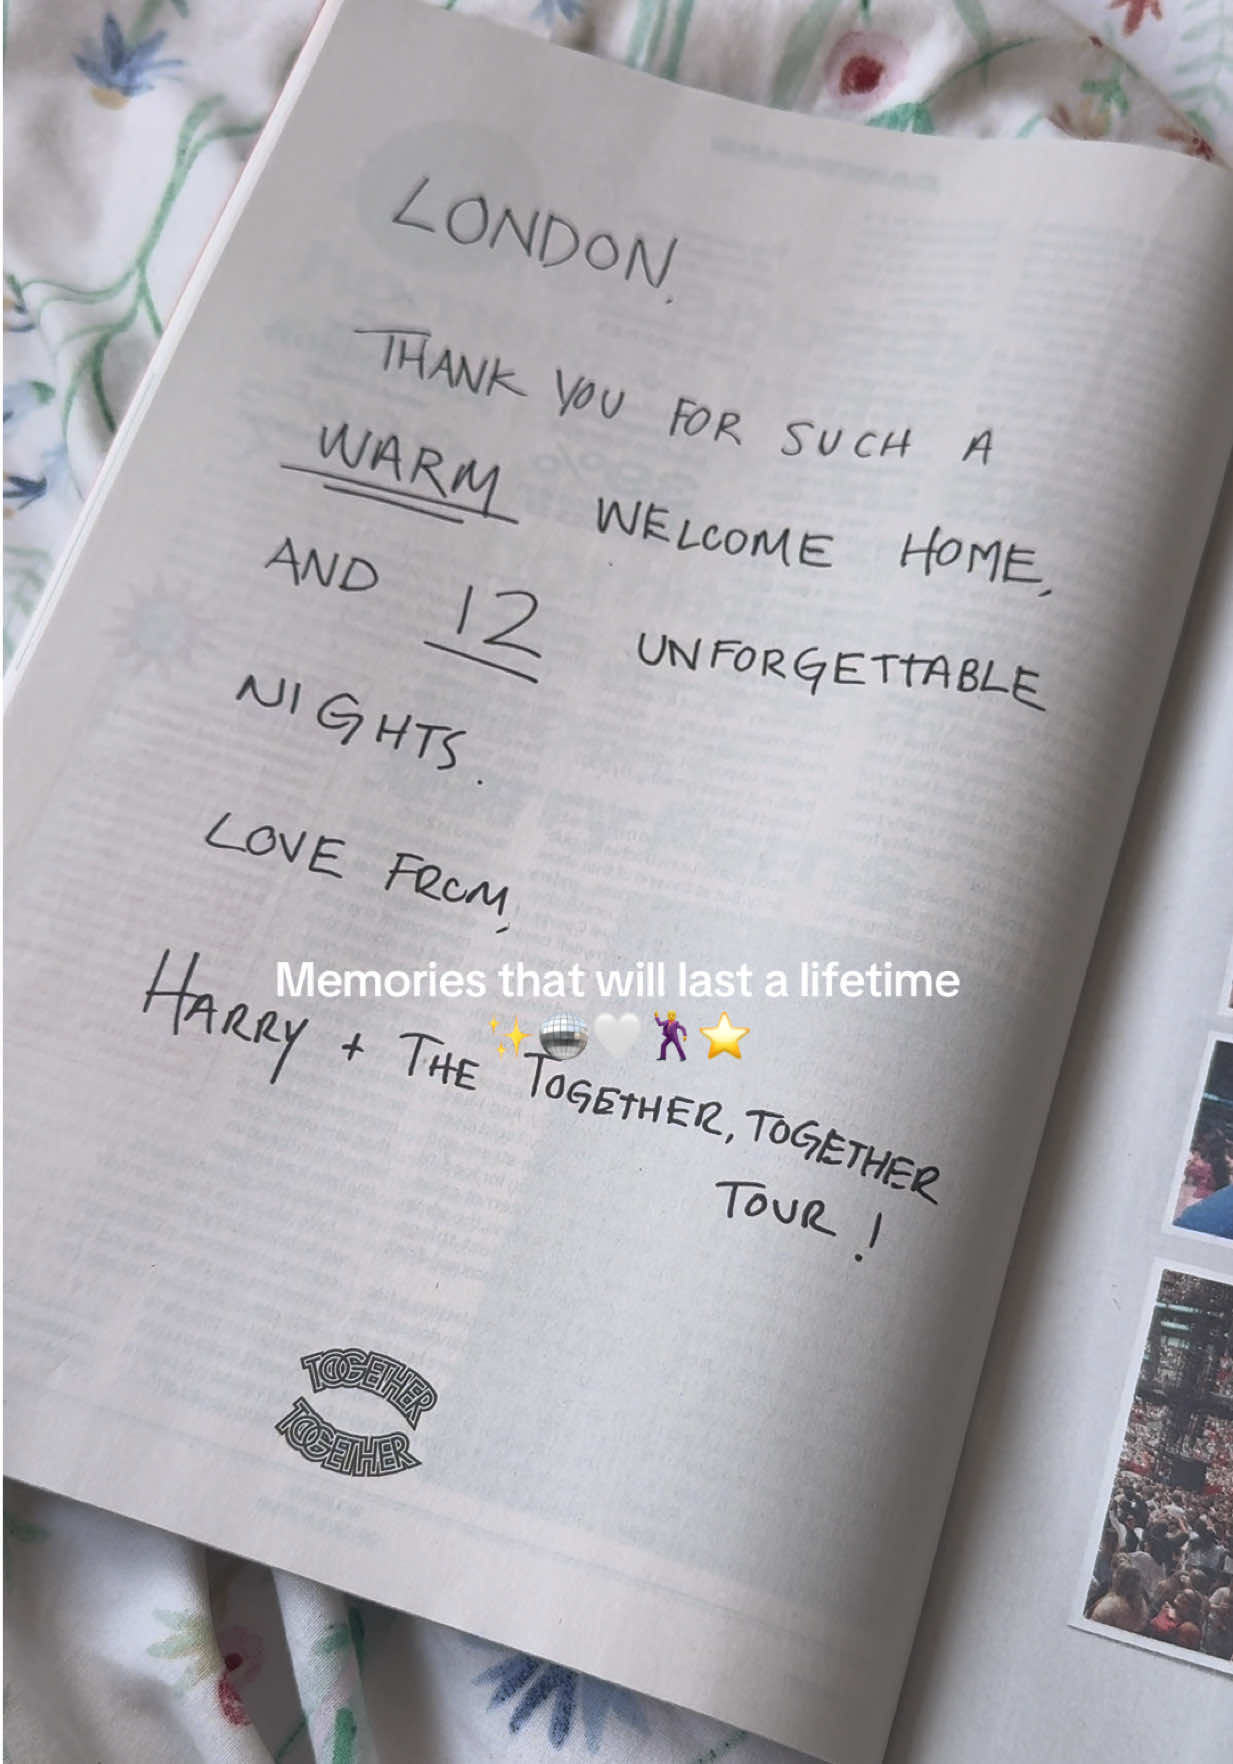 LONDON,
THANK YOU FOR SUCH A
WARM WELCOME HOME,
AND 12 UNFORGETTABLE
NIGHTS.
LOVE FROM,
Memories that will last a lifetime
✨🪩🤍🕺⭐
HARRY + THE TOGETHER, TOGETHER
TOUR!
TOGETHER
TOGETHER